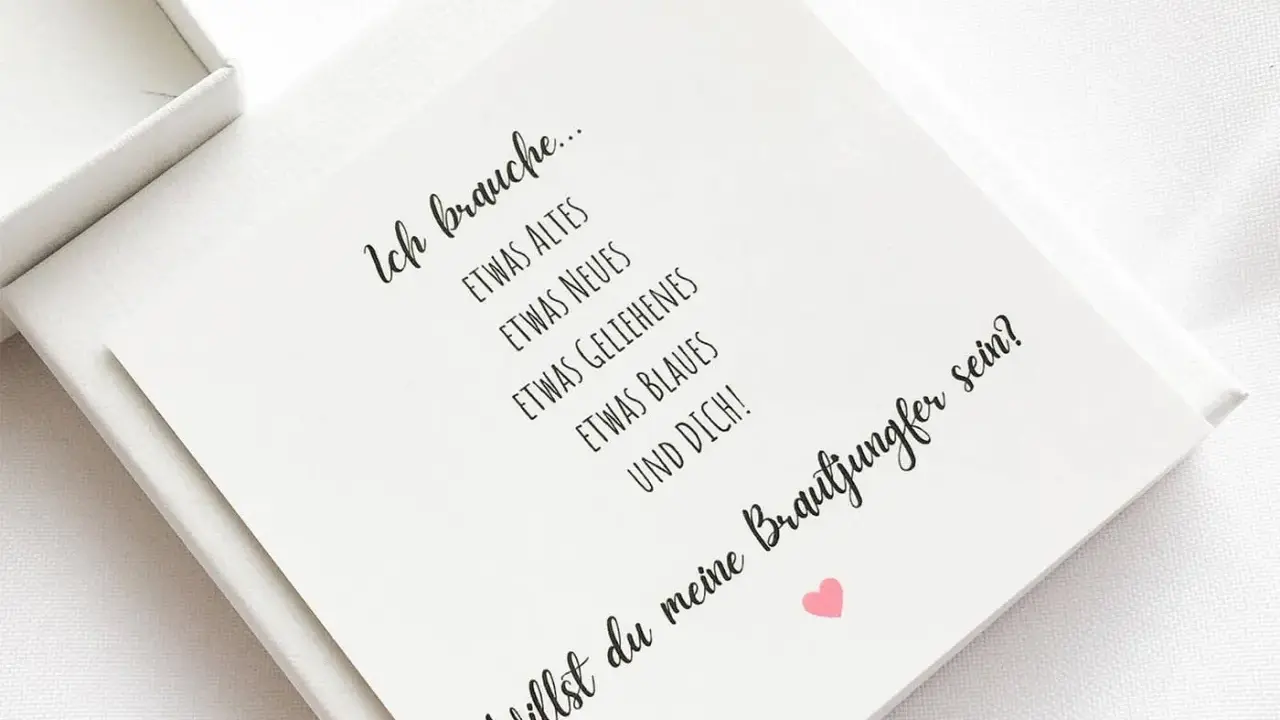 Ich brauche...
etwas Altes
etwas Neues
etwas Geliehenes
etwas Blaues
und DICH!
Willst du meine Brautjungfer sein?